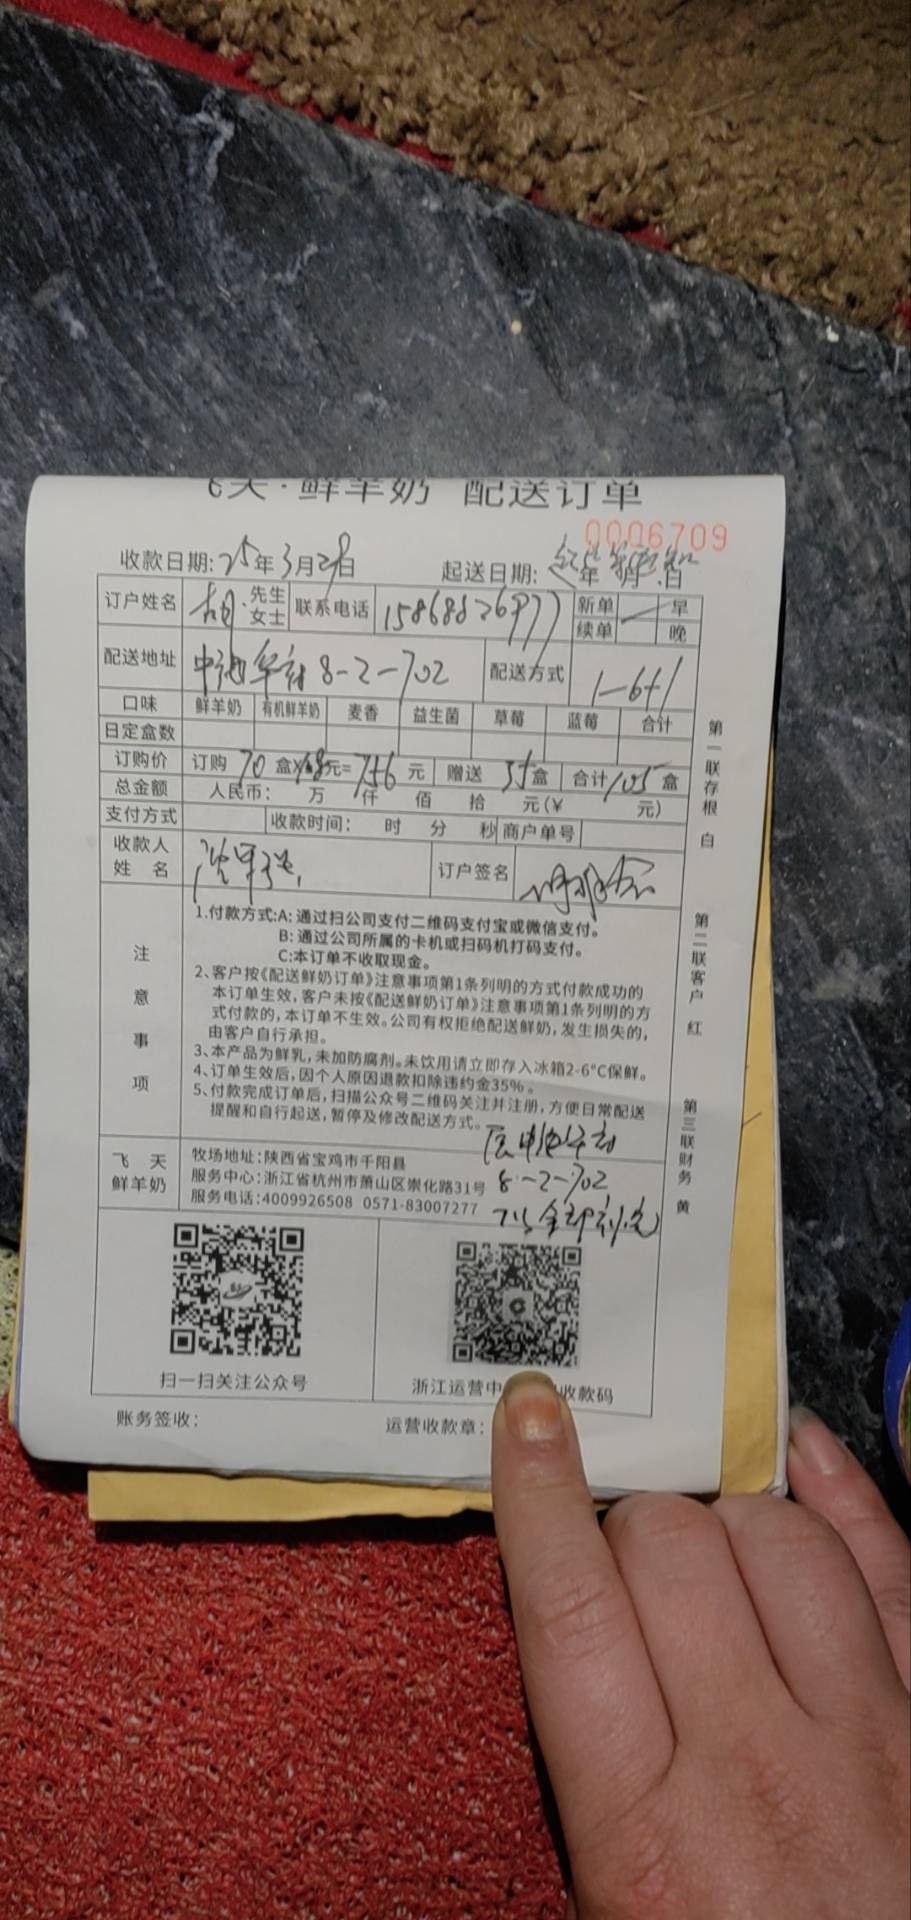 飞天·鲜羊奶 配送订单
0006709
收款日期: 25年3月29日 起送日期: 年 月 日
订户姓名 胡 先生 女士 联系电话 新单 续单 早 晚
配送地址 8-2-702 配送方式 1-6+1
口味 鲜羊奶 有机鲜羊奶 麦香 益生菌 草莓 蓝莓 合计
日定盒数
订购价 订购 70 盒× 元=756 元 赠送 35盒 合计105盒
总金额 人民币: 万 仟 佰 拾 元(¥ 元)
支付方式 收款时间: 时 分 秒 商户单号
收款人
姓 名 订户签名
注意事项
1.付款方式:A: 通过扫公司支付二维码支付宝或微信支付。
B: 通过公司所属的卡机或扫码机打码支付。
C:本订单不收取现金。
2、客户按《配送鲜奶订单》注意事项第1条列明的方式付款成功的
本订单生效,客户未按《配送鲜奶订单》注意事项第1条列明的方
式付款的,本订单不生效。公司有权拒绝配送鲜奶,发生损失的,
由客户自行承担。
3、本产品为鲜乳,未加防腐剂。未饮用请立即存入冰箱2-6°C保鲜。
4、订单生效后,因个人原因退款扣除违约金35%。
5、付款完成订单后,扫描公众号二维码关注并注册,方便日常配送
提醒和自行起送,暂停及修改配送方式。
飞天
鲜羊奶
牧场地址:陕西省宝鸡市千阳县
服务中心:浙江省杭州市萧山区崇化路31号
8-2-702
服务电话:4009926508 0571-83007277
扫一扫关注公众号
浙江运营中 收款码
账务签收: 运营收款章:
第一联存根 白
第二联客户 红
第三联财务 黄